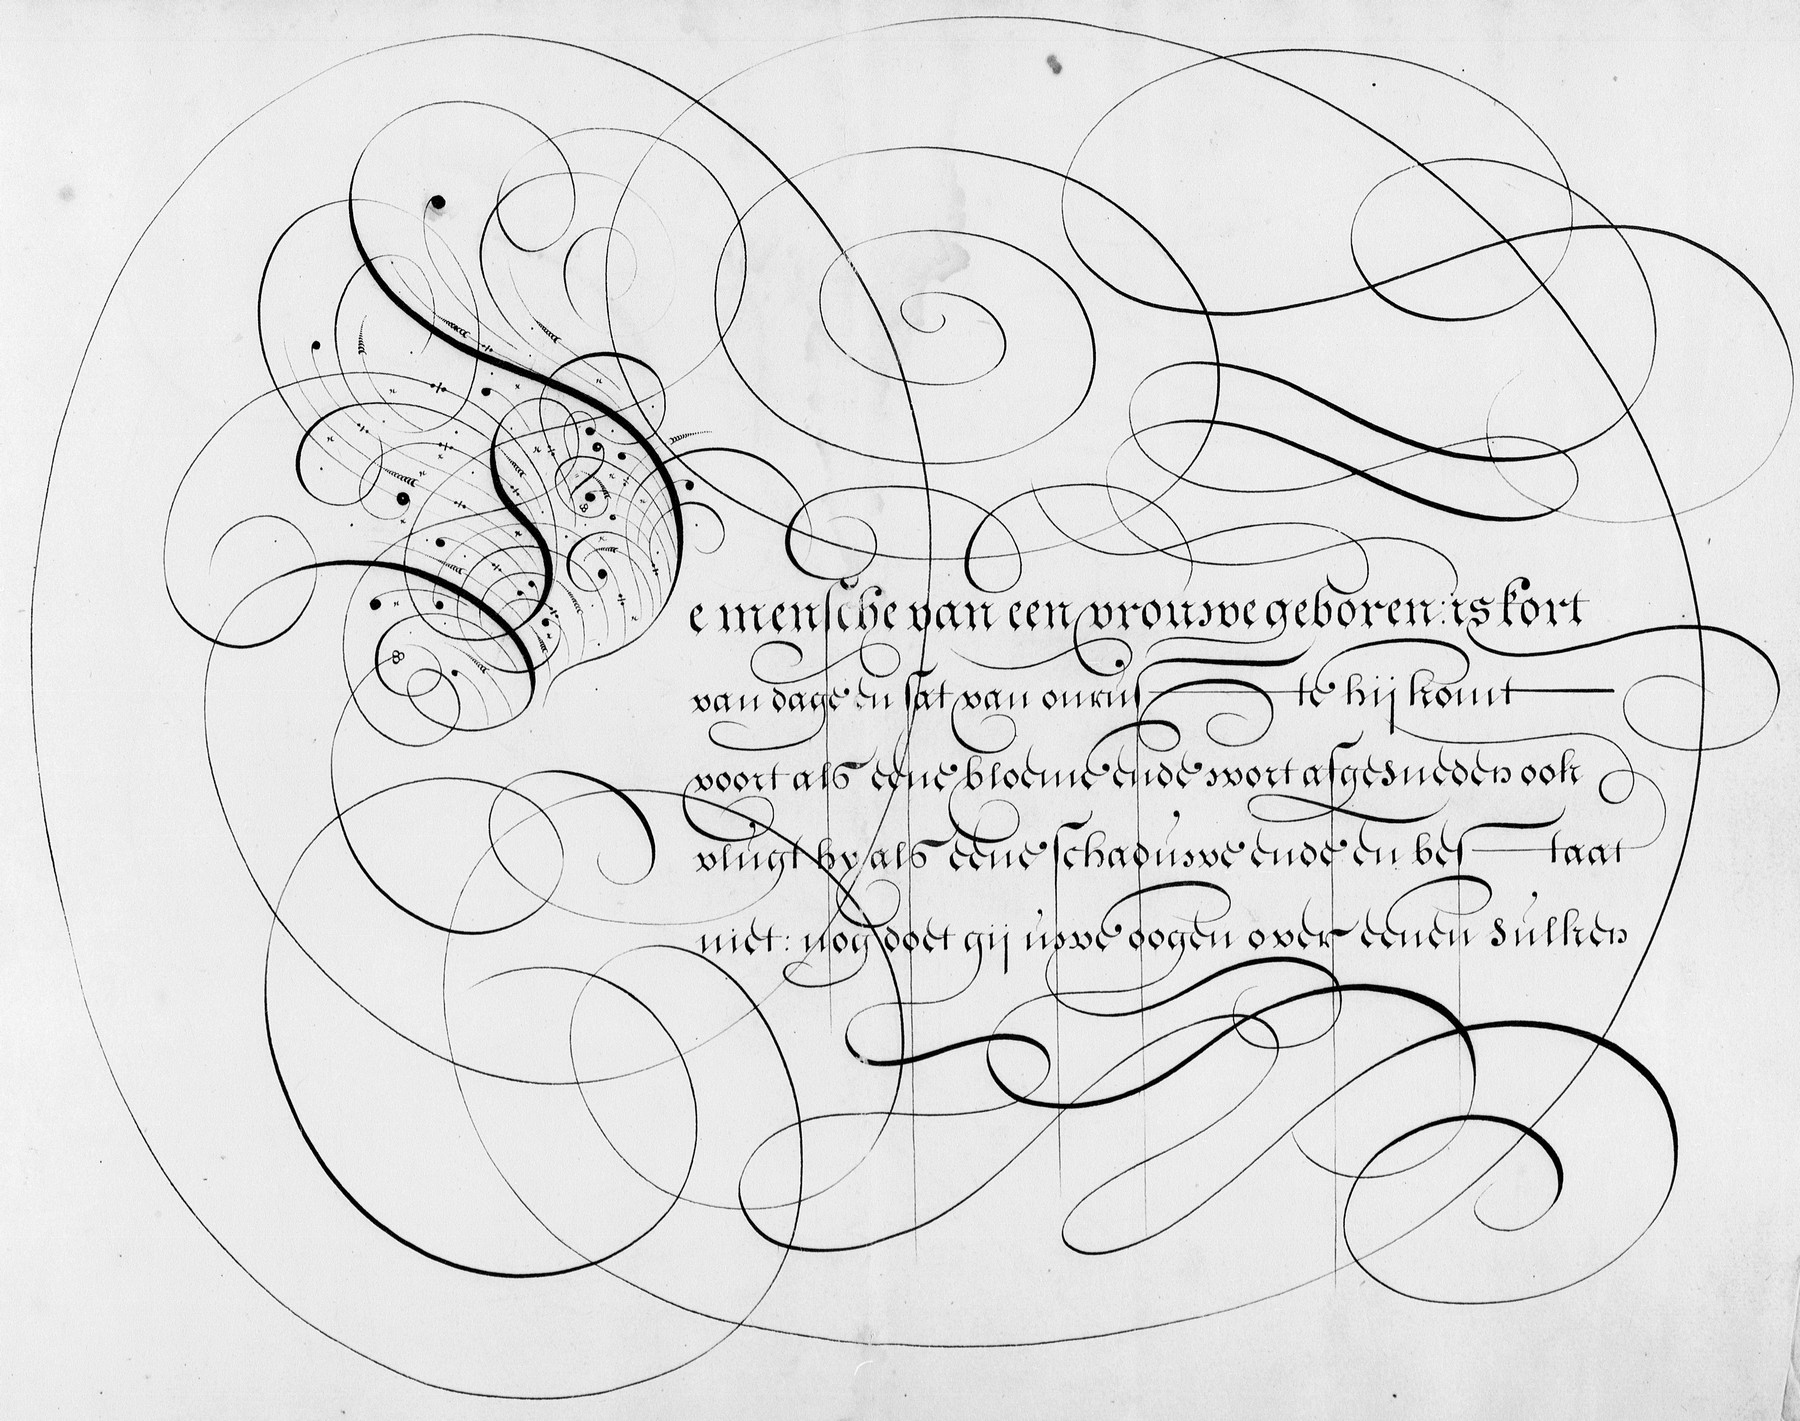 De mensche van een vrouwe geboren: is kort
van dage en sat van onrus te hij komt
voort als eene bloeme ende wort afgesneden ook
vlugt hy als eene schaduwe ende en bes taat
niet: nog doet gij uwe oogen over eenen sulken